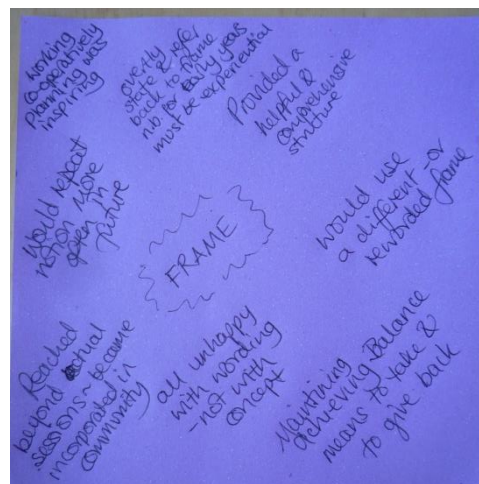 working
co-operatively
planning was
inspiring
overtly
state & refer
back to frame
n.b. for early years
must be experiential
Provided a
helpful &
comprehensive
structure
would repeat
notion more
often in
future
FRAME
would use
a different or
reworded frame
Reached
beyond actual
sessions ~ became
incorporated in
community
all unhappy
with wording
- not with
concept
Maintining
achieving Balance
means to take &
to give back